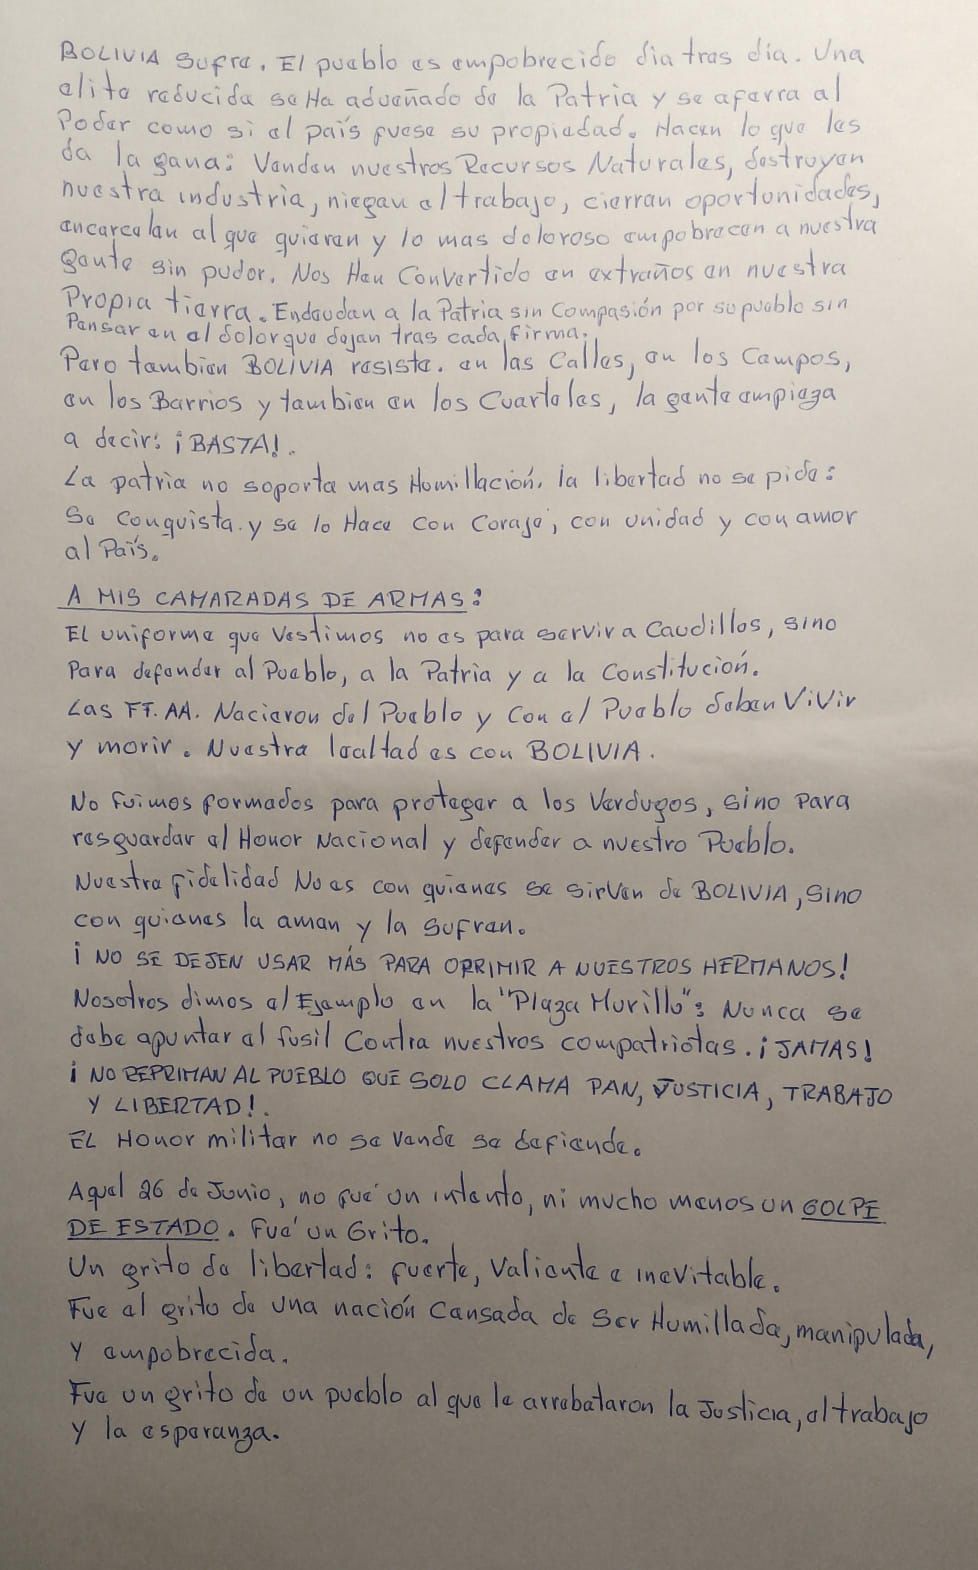 BOLIVIA Sufre. El pueblo es empobrecido dia tras día. Una
elite reducida se Ha adueñado de la Patria y se aferra al
Poder como si el país fuese su propiedad. Hacen lo que les
da la gana: Venden nuestros Recursos Naturales, destruyen
nuestra industria, niegan el trabajo, cierran oportunidades,
encarcelan al que quieran y lo mas doloroso empobrecen a nuestra
gente sin pudor. Nos Han Convertido en extraños en nuestra
Propia tierra. Endeudan a la Patria sin Compasión por su pueblo sin
Pensar en el dolor que dejan tras cada firma.
Pero tambien BOLIVIA resiste. en las Calles, en los Campos,
en los Barrios y tambien en los Cuarteles, la gente empieza
a decir: ¡BASTA!.
La patria no soporta mas Humillación. la libertad no se pide:
Se Conquista. y se lo Hace Con Coraje, con unidad y con amor
al País.
A MIS CAMARADAS DE ARMAS:
EL uniforme que Vestimos no es para servir a Caudillos, sino
Para defender al Pueblo, a la Patria y a la Constitución.
Las FF.AA. Nacieron del Pueblo y Con el Pueblo deben ViVir
y morir. Nuestra lealtad es con BOLIVIA.
No Fuimos formados para proteger a los Verdugos, sino Para
resguardar el Honor Nacional y defender a nuestro Pueblo.
Nuestra fidelidad No es con quienes se sirven de BOLIVIA, sino
con quienes la aman y la sufren.
¡NO SE DEJEN USAR MÁS PARA OPRIMIR A NUESTROS HERMANOS!
Nosotros dimos el Ejemplo en la "Plaza Murillo": Nunca se
debe apuntar el fusil Contra nuestros compatriotas. ¡JAMAS!
¡NO REPRIMAN AL PUEBLO QUE SOLO CLAMA PAN, JUSTICIA, TRABAJO
Y LIBERTAD!.
EL Honor militar no se Vende se defiende.
Aquel 26 de Junio, no fue' un intento, ni mucho menos un GOLPE
DE ESTADO. Fue' un Grito.
Un grito de libertad: fuerte, Valiente e inevitable.
Fue el grito de una nación Cansada de Ser Humillada, manipulada,
y empobrecida.
Fue un grito de un pueblo al que le arrebataron la Justicia, el trabajo
y la esperanza.